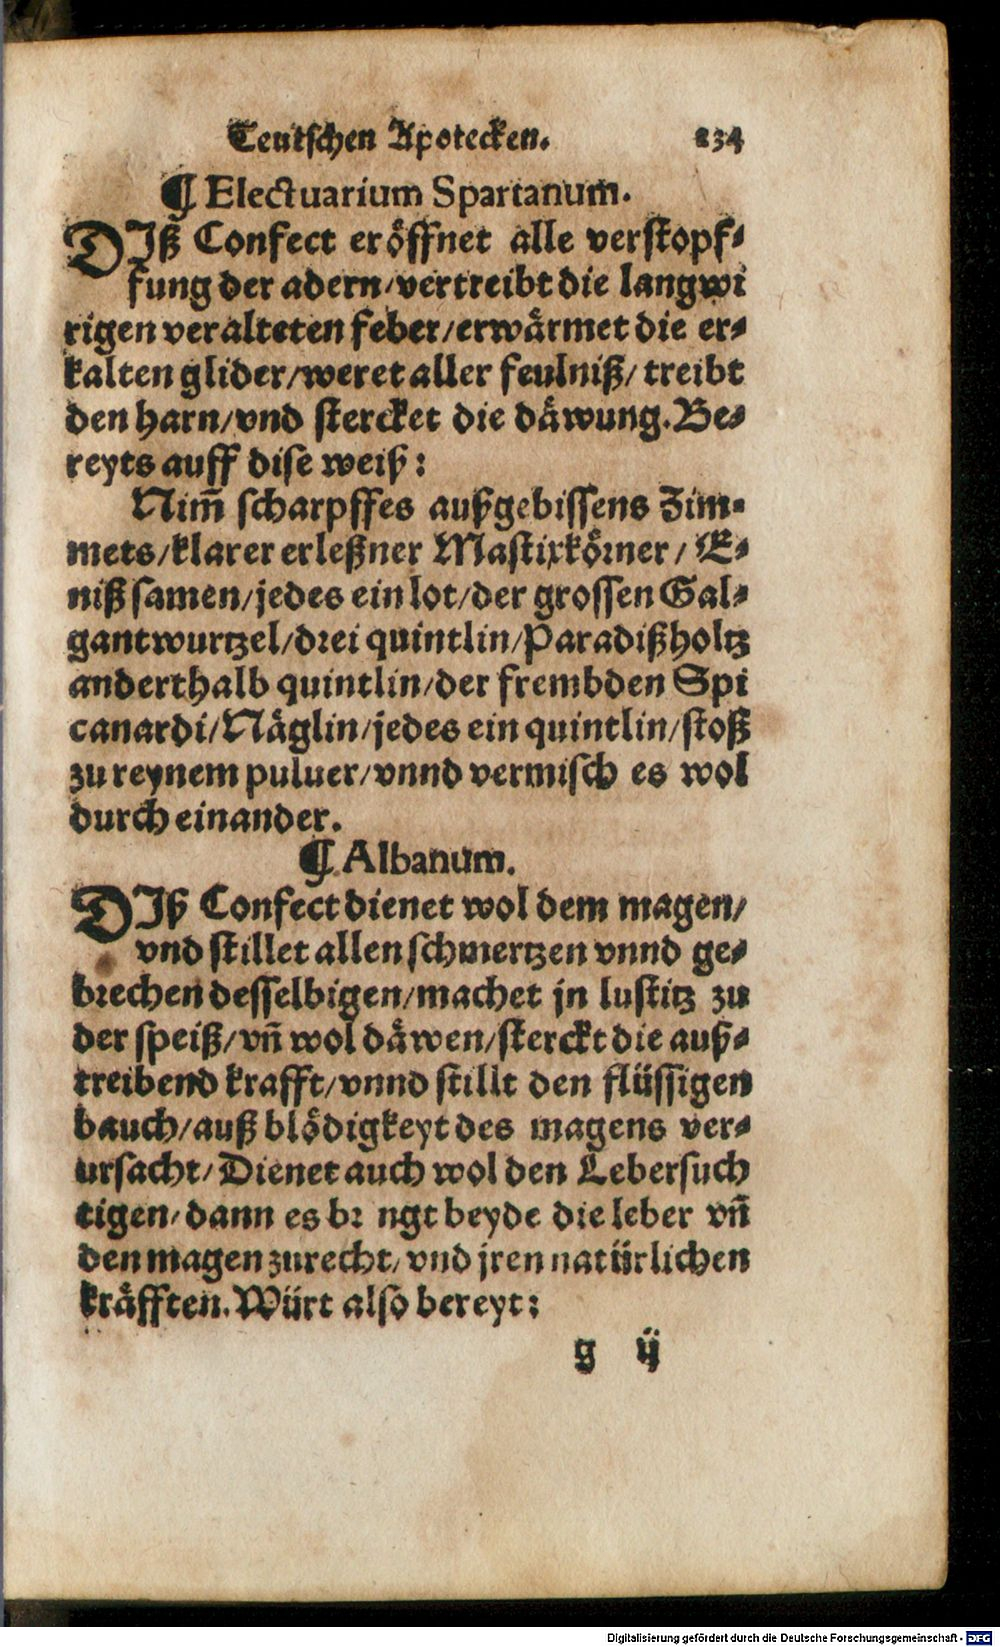 Teutschen Apotecken. 234
¶ Electuarium Spartanum.
DJß Confect eröffnet alle verstopf⸗
fung der adern/vertreibt die langwi
rigen veralteten feber/erwärmet die er⸗
kalten glider/weret aller feulniß/ treibt
den harn/vnd stercket die däwung. Be⸗
reyts auff dise weiß:
Nim̃ scharpffes außgebissens Zim⸗
mets/klarer erleßner Mastixkörner/ E⸗
niß samen/jedes ein lot/der grossen Gal⸗
gantwurtzel/drei quintlin/Paradißholtz
anderthalb quintlin/der frembden Spi
canardi/Näglin/jedes ein quintlin/stoß
zu reynem puluer/vnnd vermisch es wol
durch einander.
¶ Albanum.
DJß Confect dienet wol dem magen/
vnd stillet allen schmertzen vnnd ge⸗
brechen desselbigen/machet jn lustitz zu
der speiß/vñ wol däwen/sterckt die auß⸗
treibend krafft/vnnd stillt den flüssigen
bauch/auß blödigkeyt des magens ver⸗
ursacht/Dienet auch wol den Lebersuch
tigen/dann es br ngt beyde die leber vñ
den magen zurecht/vnd jren natürlichen
kräfften. Würt also bereyt:
g ij
Digitalisierung gefördert durch die Deutsche Forschungsgemeinschaft - DFG